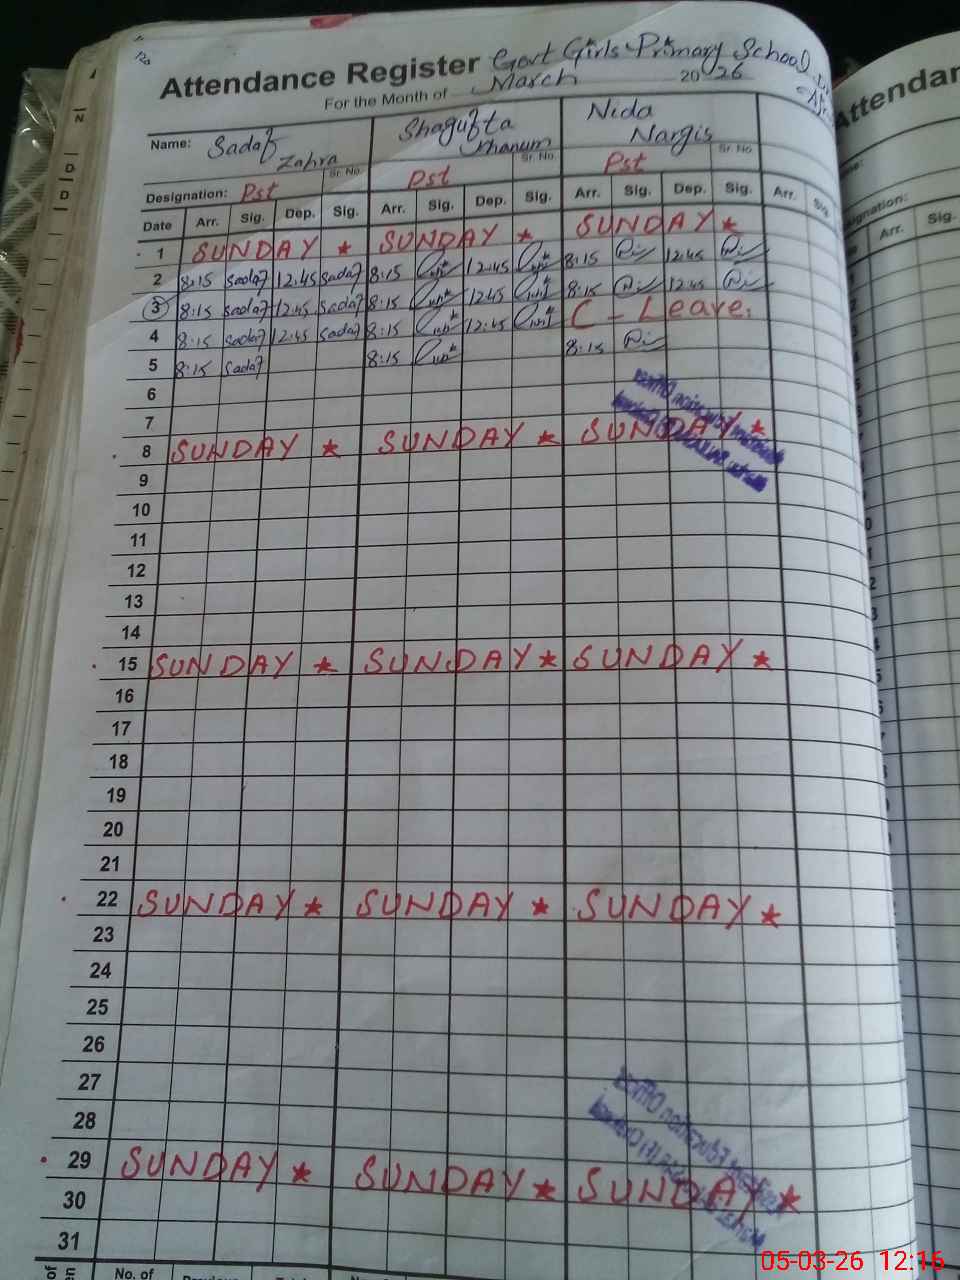 Attendance Register Govt Girls Primary School
For the Month of March 2026
Name: Sadaf Zahra Shagufta Khanum Nida Nargis
Sr. No. Sr. No. Sr. No.
Designation: Pst Pst Pst
Date Arr. Sig. Dep. Sig. Arr. Sig. Dep. Sig. Arr. Sig. Dep. Sig. Arr. Sig.
1 SUNDAY ★ SUNDAY ★ SUNDAY ★
2 8:15 Sadaf 12:45 Sadaf 8:15 12:45 8:15 12:45
3 8:15 Sadaf 12:45 Sadaf 8:15 12:45 8:15 12:45
4 8:15 Sadaf 12:45 Sadaf 8:15 12:45 C - Leave.
5 8:15 Sadaf 8:15 8:15
6
7
8 SUNDAY ★ SUNDAY ★ SUNDAY ★
9
10
11
12
13
14
15 SUNDAY ★ SUNDAY ★ SUNDAY ★
16
17
18
19
20
21
22 SUNDAY ★ SUNDAY ★ SUNDAY ★
23
24
25
26
27
28
29 SUNDAY ★ SUNDAY ★ SUNDAY ★
30
31
No. of
Attendan
Arr. Sig.
05-03-26 12:16